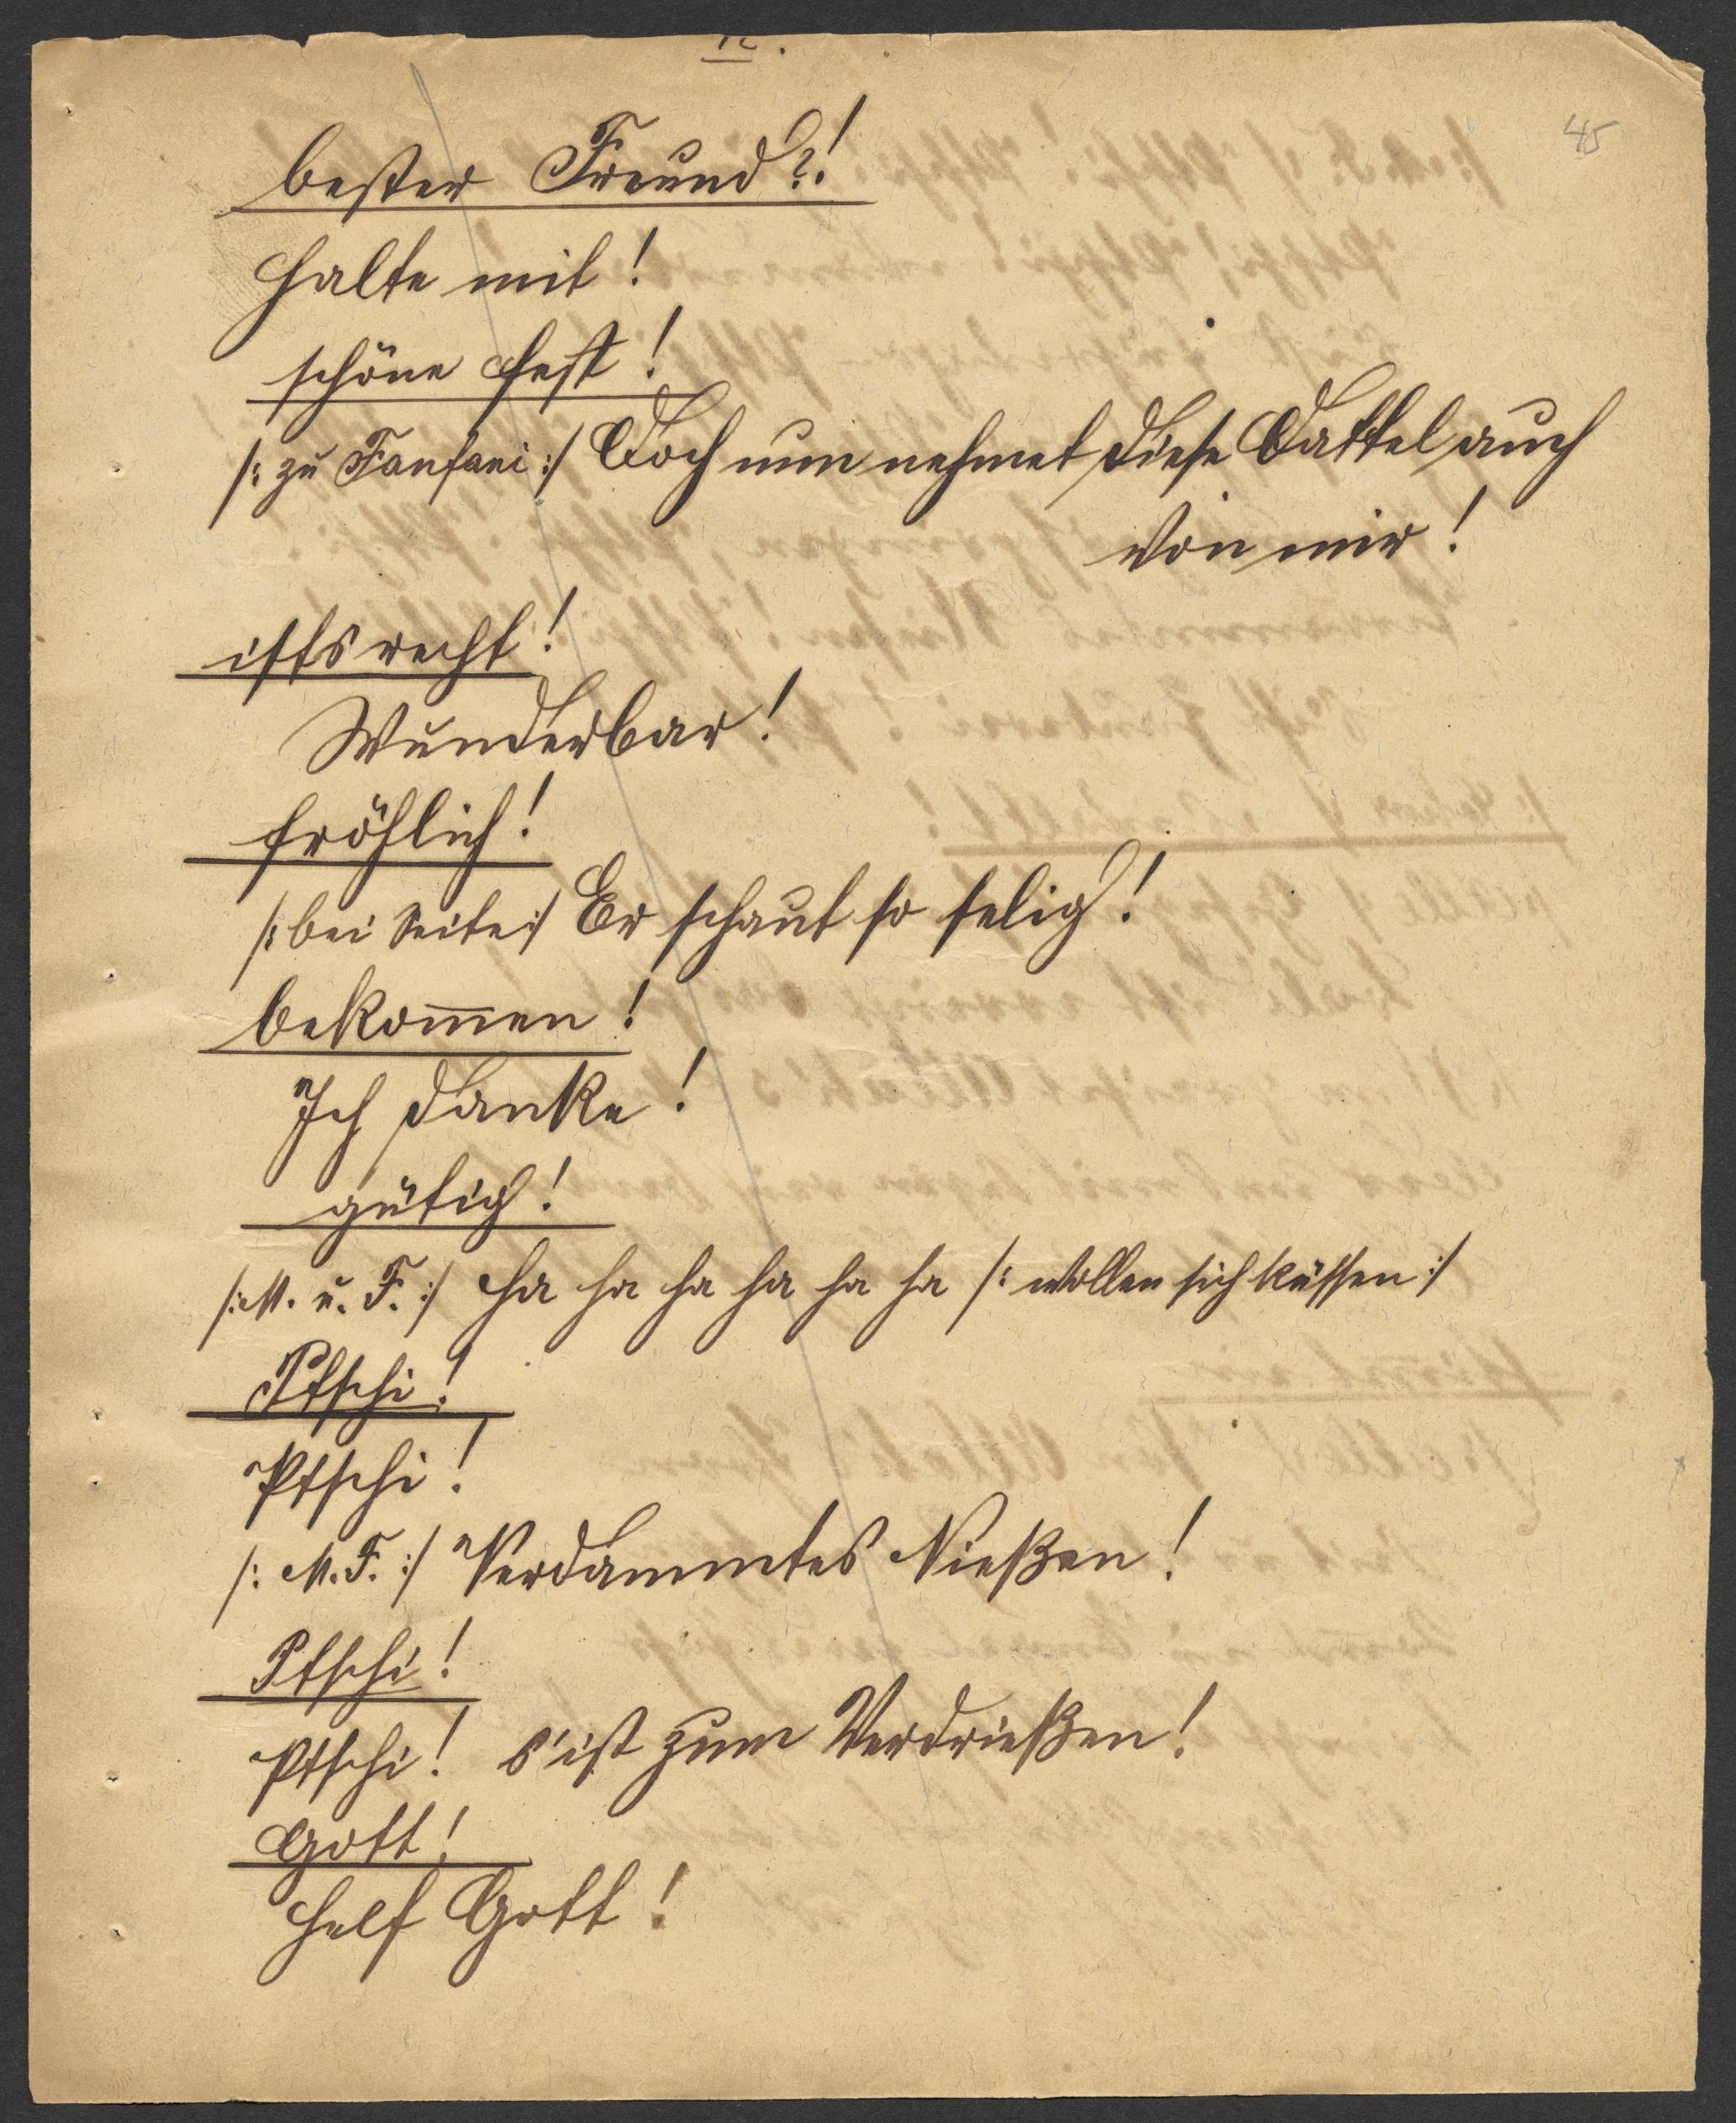 45
bester Freund?!
Halte mit!
schöne Fest!
/: zu Fanfani :/ Doch nun nehmet diese Dattel auch
von mir!
ists recht!
Wunderbar!
fröhlich!
/: bei Seite :/ Er schaut so selig!
bekom̅en!
Ich danke!
gütig!
/: M. u. F. :/ Ha ha ha ha ha ha /: wollen sich küssen :/
Ptschi!
Ptschi!
/: M. F. :/ Verdammtes Nießen!
Ptschi!
Ptschi! s'ist zum Verdrießen!
Gott!
Helf Gott!